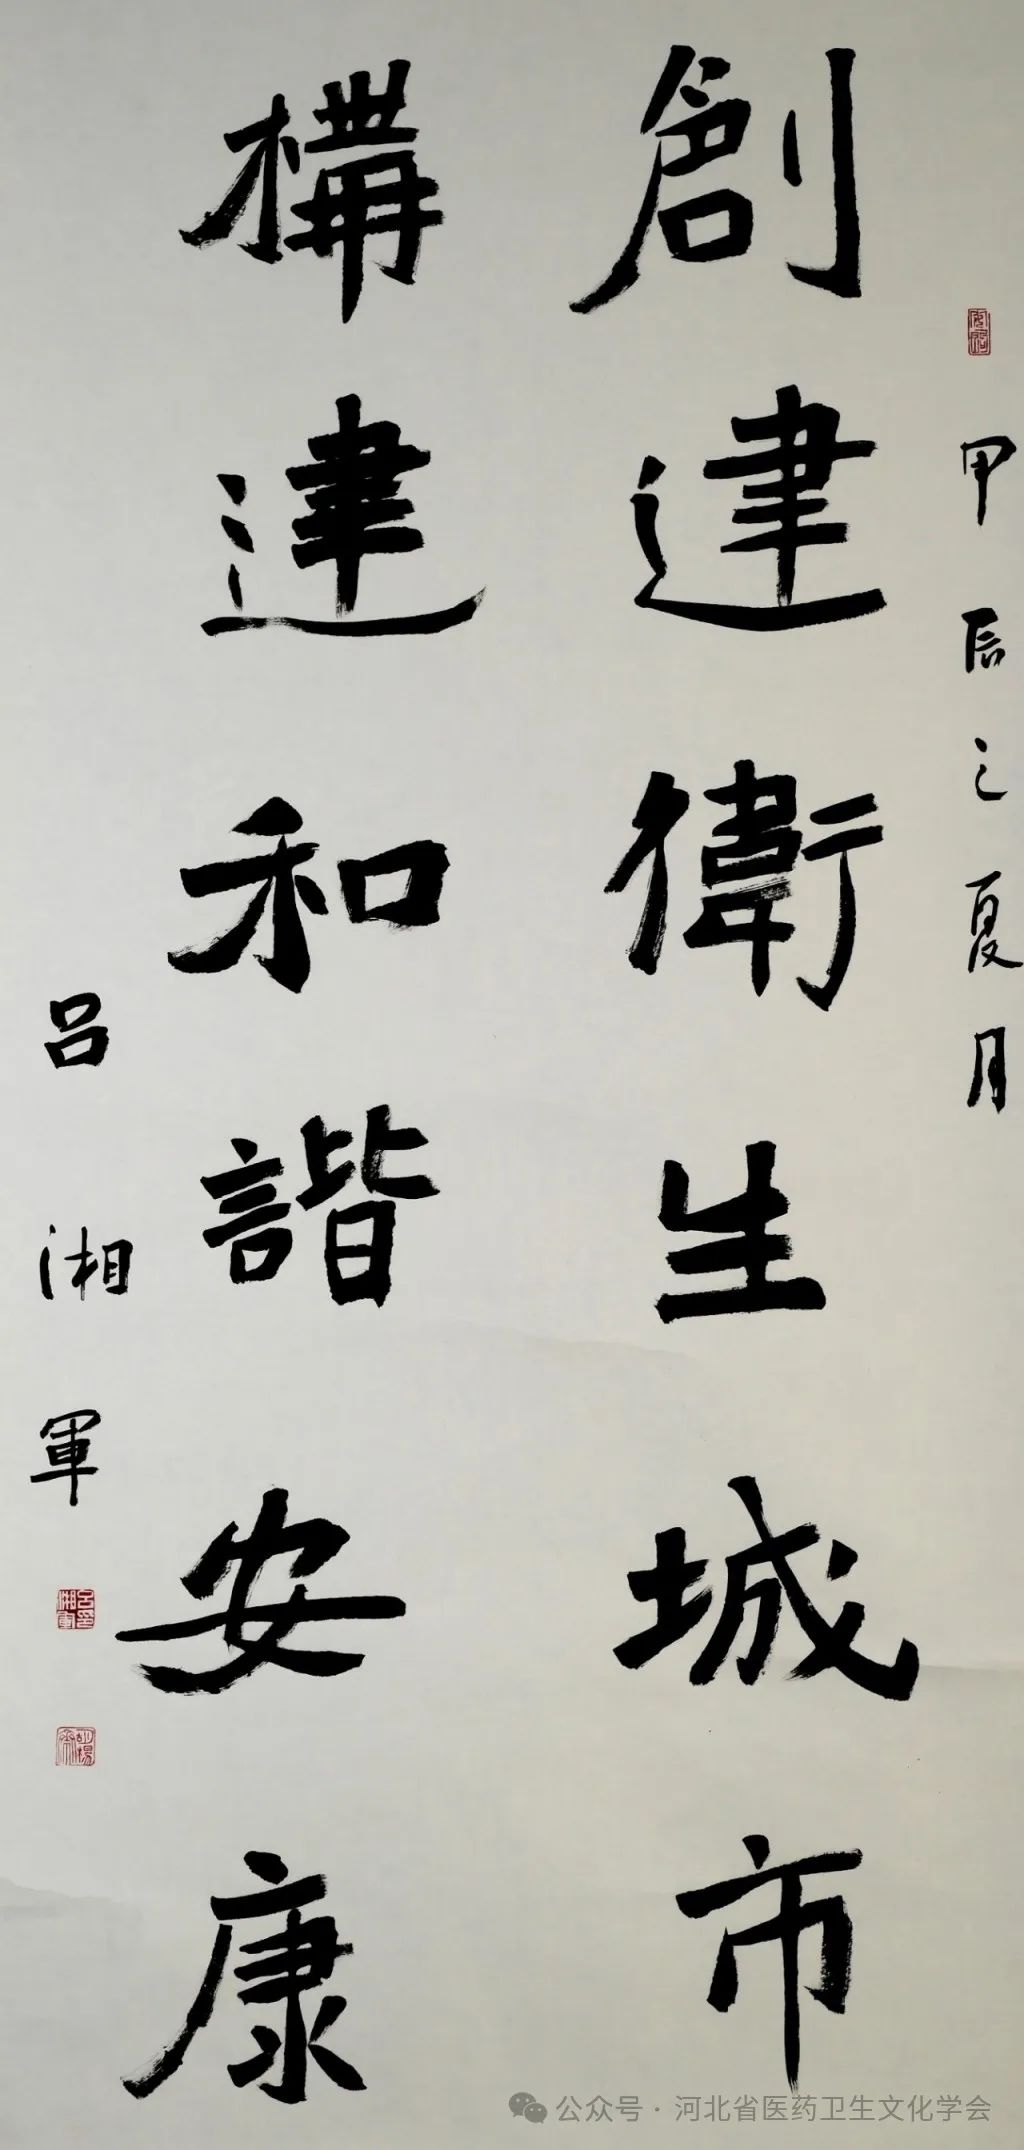 甲辰之夏月
創建衛生城市
構建和諧安康
吕湘軍
公众号·河北省医药卫生文化学会